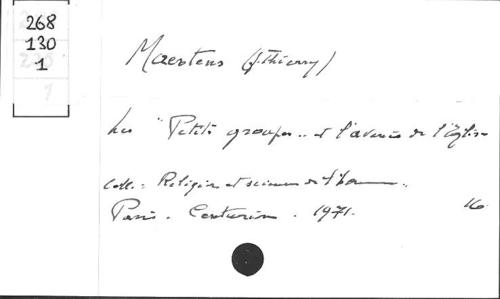 268
130
1
Maertens (J. Thierry)
Les "Petits groupes" et l'avenir de l'Église
Coll. : Religion et sciences de l'homme.
Paris. Centurion. 1971. 16